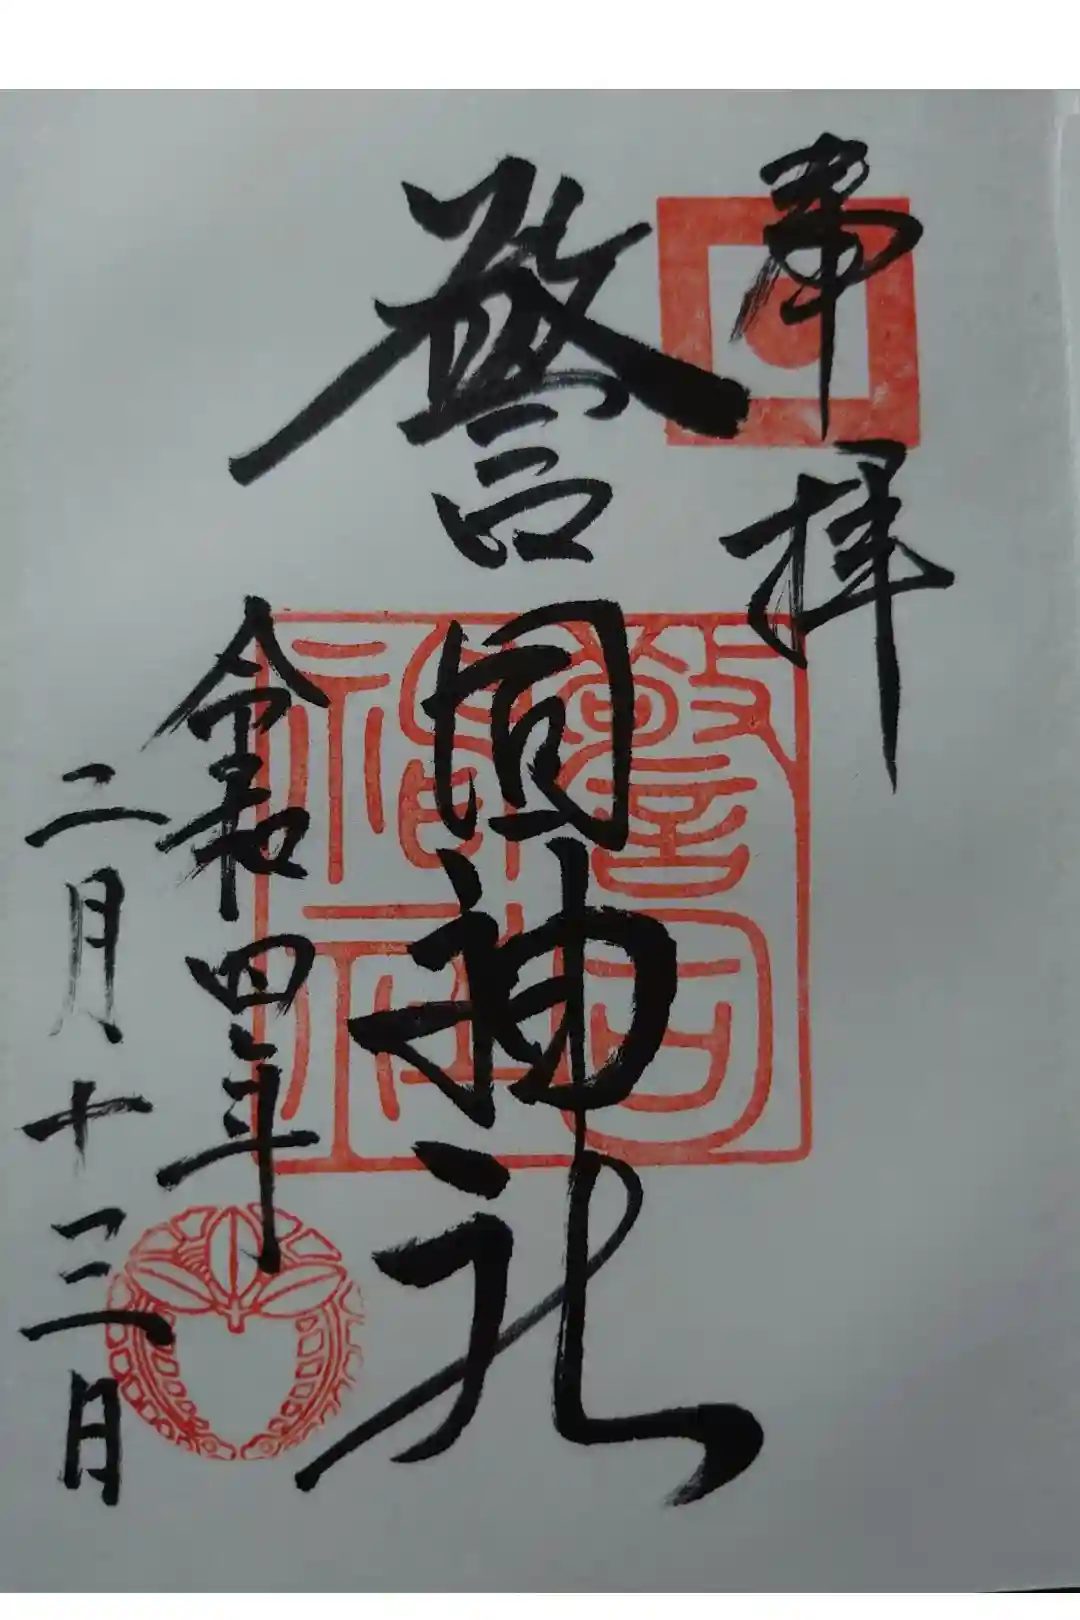 奉拝
警固神社
令和四年
二月十三日